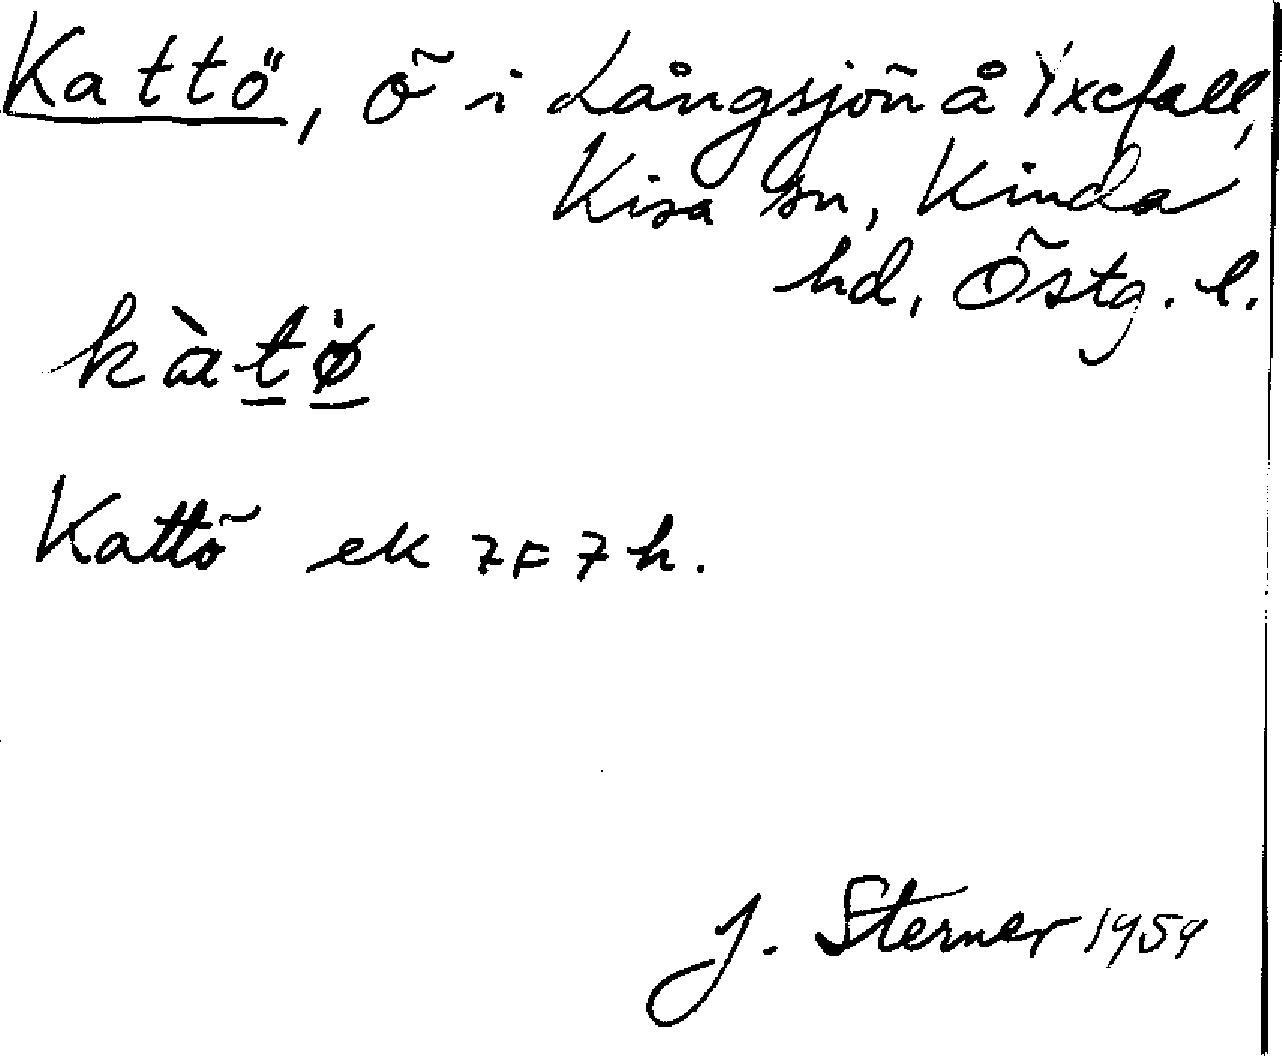 Kattö, ö i Långsjön å Yxefall,
Kisa sn, Kinda
hd, Östg. l.
Kattö ek 7F7h.
J. Sterner 1959